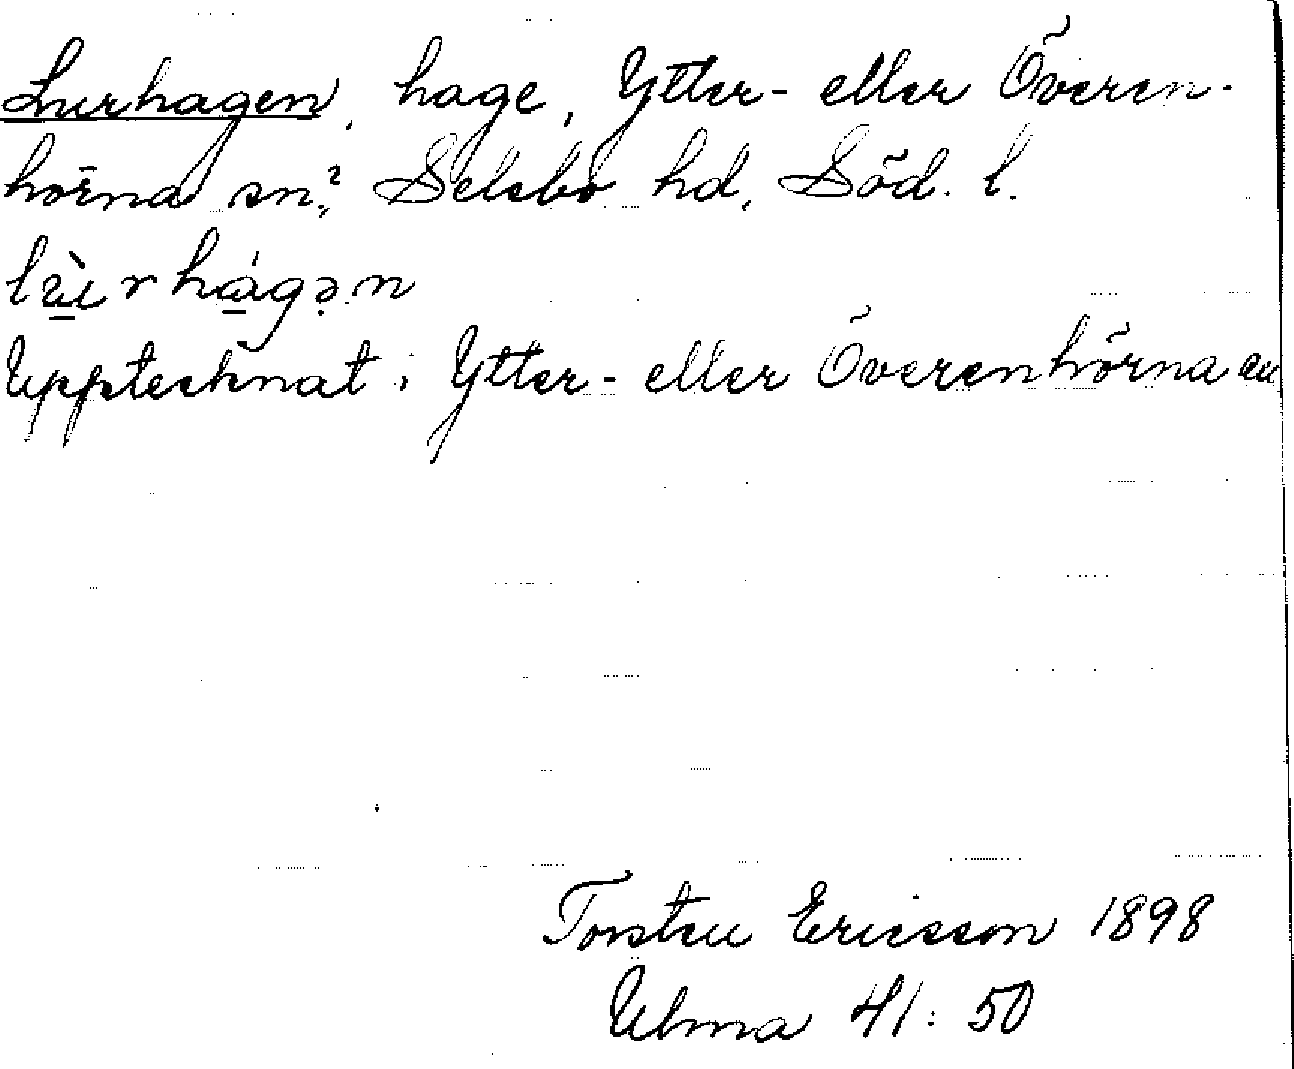 Lurhagen, hage, Ytter- eller Överen-
hörna sn? Selebo hd, Söd. l.
lùrhágən
Upptecknat i Ytter- eller Överenhörna sn
Torsten Ericsson 1898
Ulma 41: 50